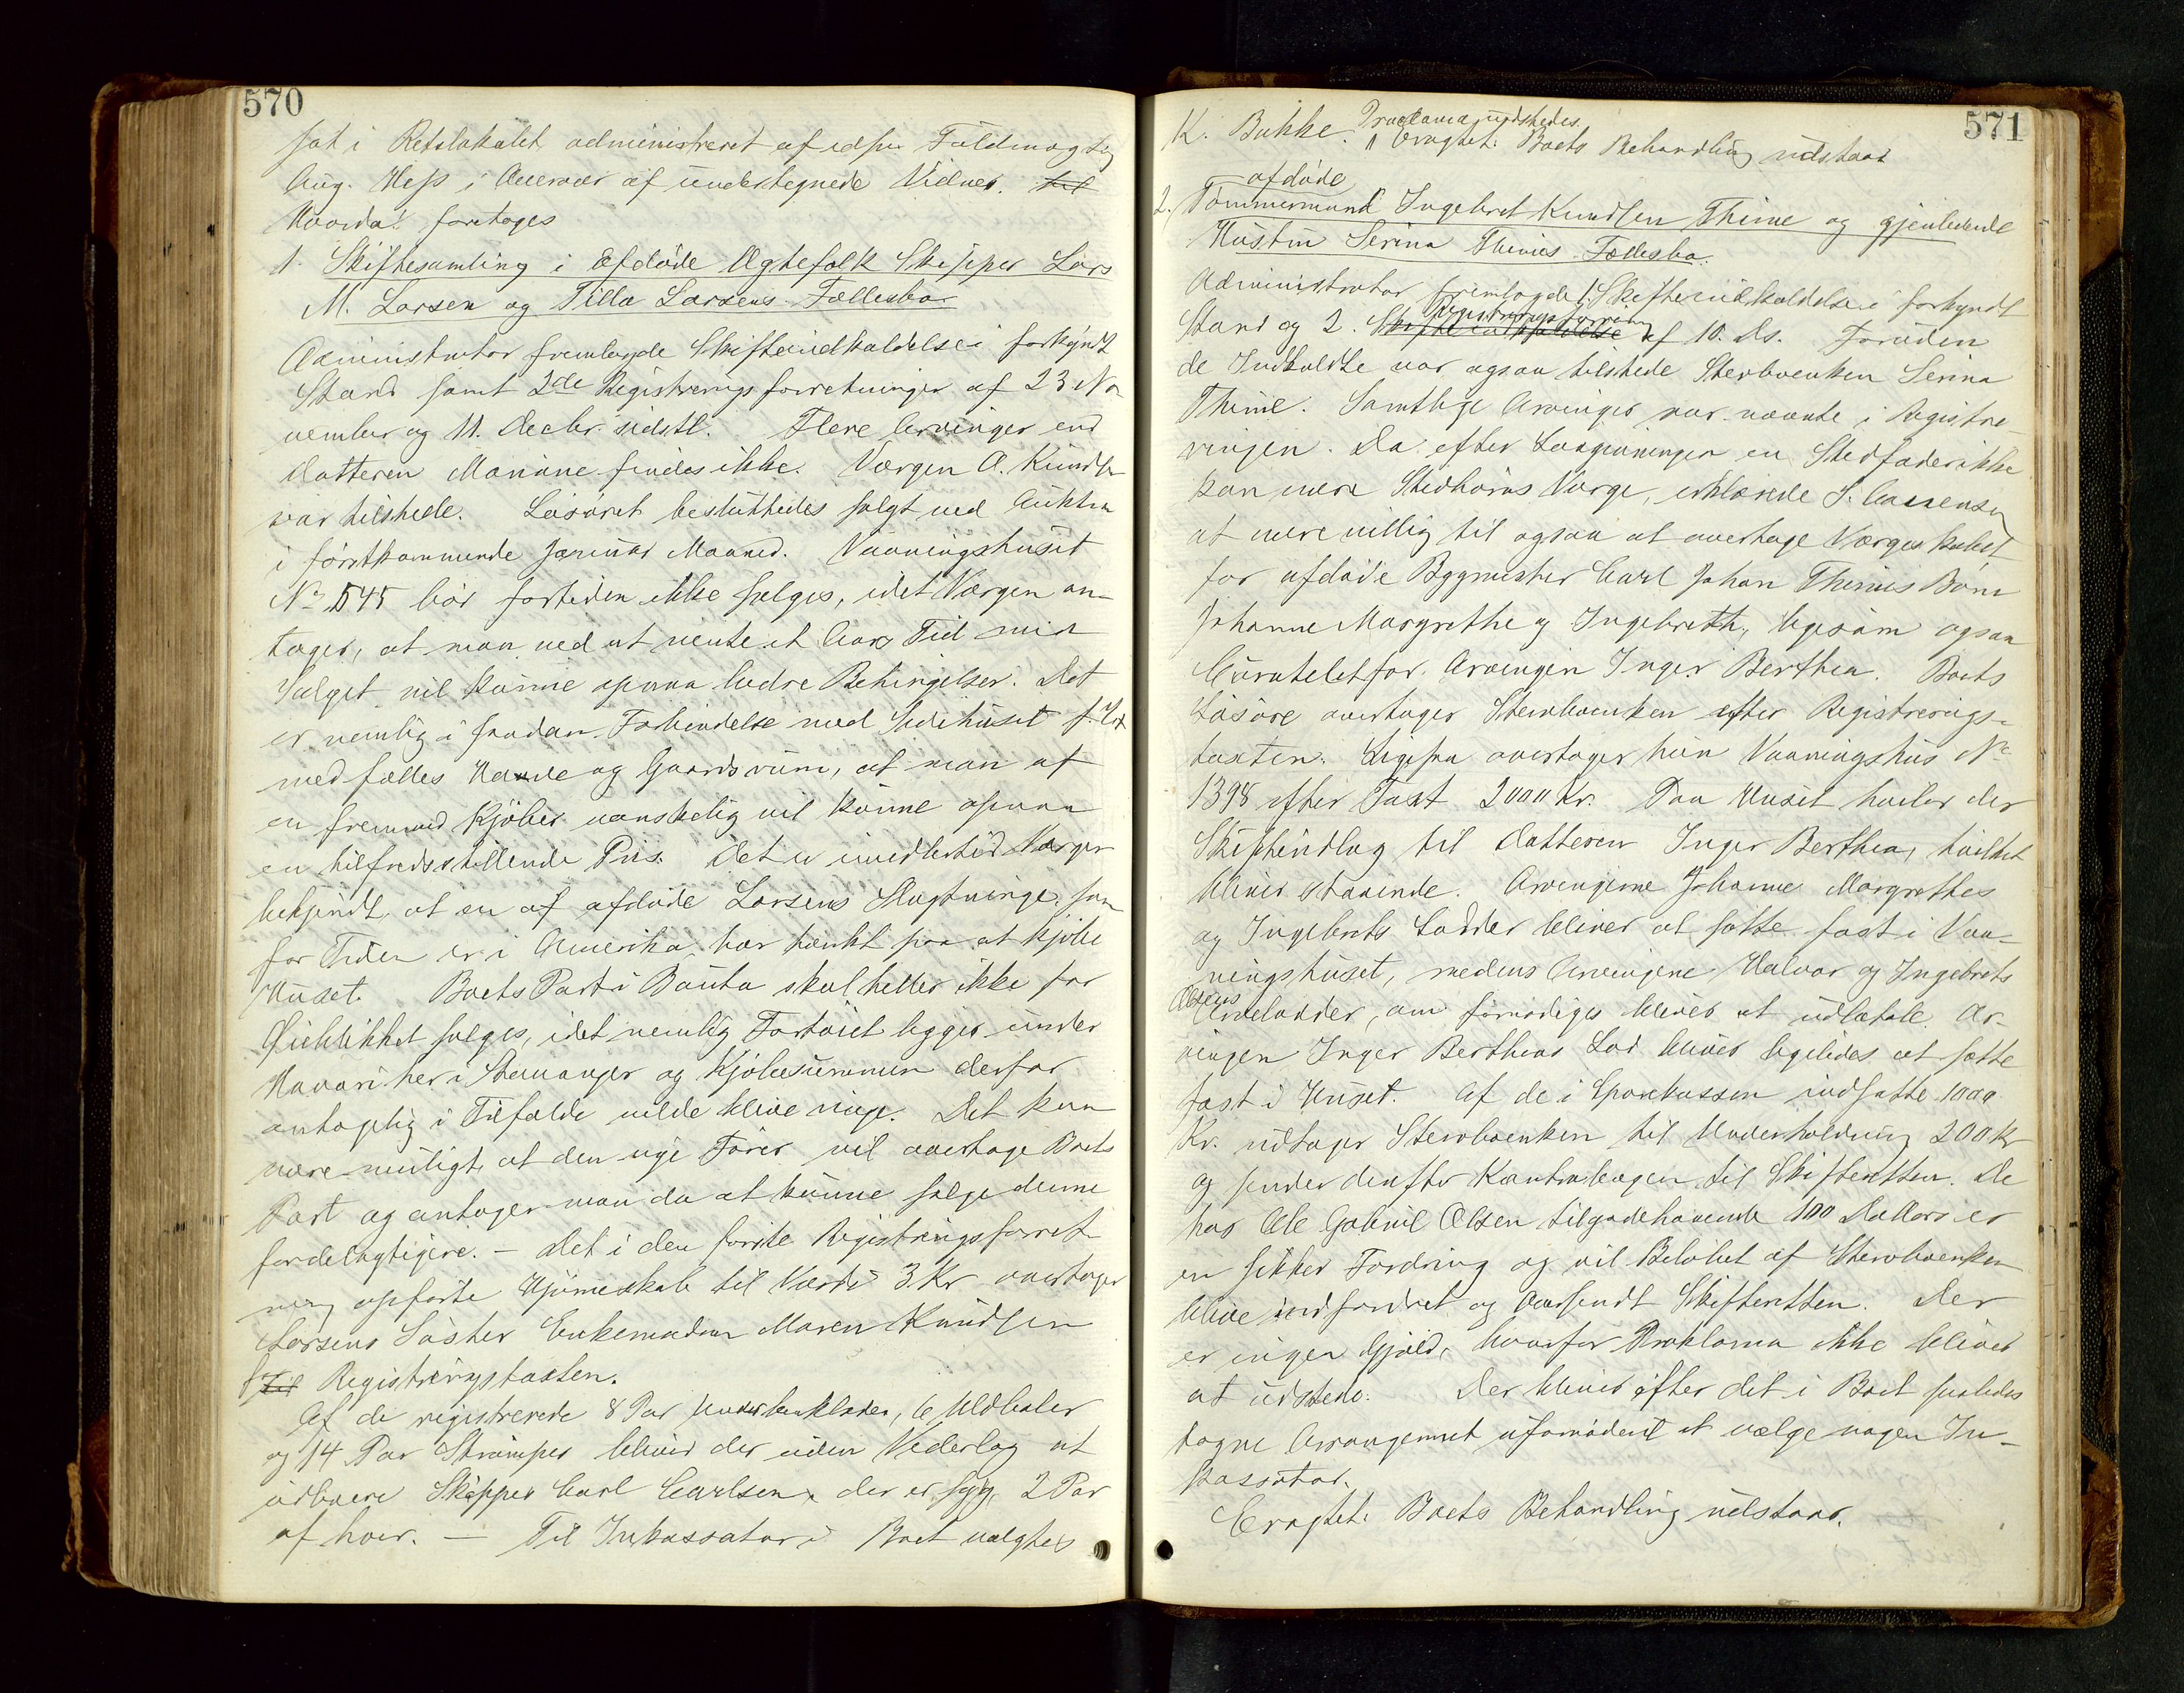 570
sat i Retslokalet administreret af edsv. Fuldmægtig
Aug. Hess i Overvær af undertegnede Vidner. til
Hvorda! foretoges
1. Skiftesamling i afdøde Ægtefolk Skipper Lars
M. Larsen og Tilla Larsens Fællesbo
Administrator fremlagde Skifteindkaldelse i forkyndt
Stand samt 2de Registreringsforretninger af 23 No-
vember og 11. Decbr. sidstl. Flere Arvinger end
Datteren Mariane findes ikke. Værgen A. Knudsen
var tilstede. Løsøret besluttedes solgt ved Auktion
i førstkommende Januar Maaned. Vaaningshuset
No 545 bør fortiden ikke sælges, idet Værgen an-
tager, at man ved at vente et Aars Tid med
Salget vil kunne opnaa bedre Betingelser. Det
er nemlig i saadan Forbindelse med Sidehuset f. Ex
med fælles og Gaardsrum, at man af
en fremmed Kjøber vanskelig vil kunne opnaa
en tilfredsstillende Pris. Det er imidlertid Værgen
bekjendt, at en af afdøde Larsens Slægtninge, som
for Tiden er i Amerika, har tænkt paa at kjøbe
Huset. Boets Part i Bauta skal heller ikke for
Øieblikket sælges, idet nemlig Fartøiet ligger under
Havari her i Stavanger og Kjøbesummen derfor
antagelig i Tilfælde vilde blive ringe. Det kan
være muligt, at den nye Fører vil overtage Boets
Part og antager man da at kunne sælge denne
fordelagtigere. – Det i den første Registreringsforret-
ning opførte Hjørneskab til Værdi 3 Kr overtager
Larsens Søster Enkemadam Maren Knudsen
f til Registreringstaxten.
Af de registrerede 8 Par Underbenklæder, 6 Uldboler
og 14 Par Strømper bliver der uden Vederlag at
udlevere Skipper Carl Carlsen, der er syg, 2 Par
af hver. — Til Inkassator i Boet valgtes
571
K. Bakke. Proclama udstedes.
Eragtet: Boets Behandling udstaar
afdøde
2. Tømmermand Ingebret Knudsen Thime og gjenlevende
Hustru Serina Thimes Fællesbo.
Administrator fremlagde 1. Skifteindkaldelse i forkyndt
Registreringsforretning
Stand og 2. Skifteindkaldelse af 10. ds. Foruden
de Indkaldte var ogsaa tilstede Sterboenken Serina
Thime. Samtlige Arvinger var nævnte i Registre-
ringen. Da efter Lovgivningen en Stedfader ikke
kan være Stedbørns Værge, erklærede S.
at være villig til ogsaa at overtage Værgeskabet
for afdøde Bygmester Carl Johan Thimes Børn
Johanne Margrethe og Ingebreth, ligesom ogsaa
Curatelet for Arvingen Inger Berthea. Boets
Løsøre overtager Sterboenken efter Registrerings-
taxten. Ligesaa overtager hun Vaaningshus No
1398 efter Taxt 2000 Kr. Paa Huset hviler der
Skifteudlæg til Datteren Inger Berthea, hvilket
bliver staaende. Arvingerne Johanne Margrethes
og Ingebrets Lodder bliver at sætte fast i Vaa-
ningshuset, medens Arvingene Halvor og Ingebrets
Olsens
Arvelodder, om fornødiges bliver at udbetale. Ar-
vingen Inger Bertheas Lod bliver ligeledes at sætte
fast i Huset. Af de i Sparekassen indsatte 1000
Kr. udtager Sterboenken til Underholdning 200 Kr
og sender derefter Kontrabogen til Skifteretten. De
hos Ole Gabriel Olsen tilgodehavende 100 Dollars er
en sikker Fordring og vil Beløbet af Sterboenken
blive indfordret og oversendt Skifteretten. Der
er ingen Gjæld, hvorfor Proklama ikke bliver
at udstede. Der bliver efter det i Boet saaledes
tagne Arrangement ufornødent at vælge nogen In-
kassator.
Eragtet: Boets Behandling udstaar.